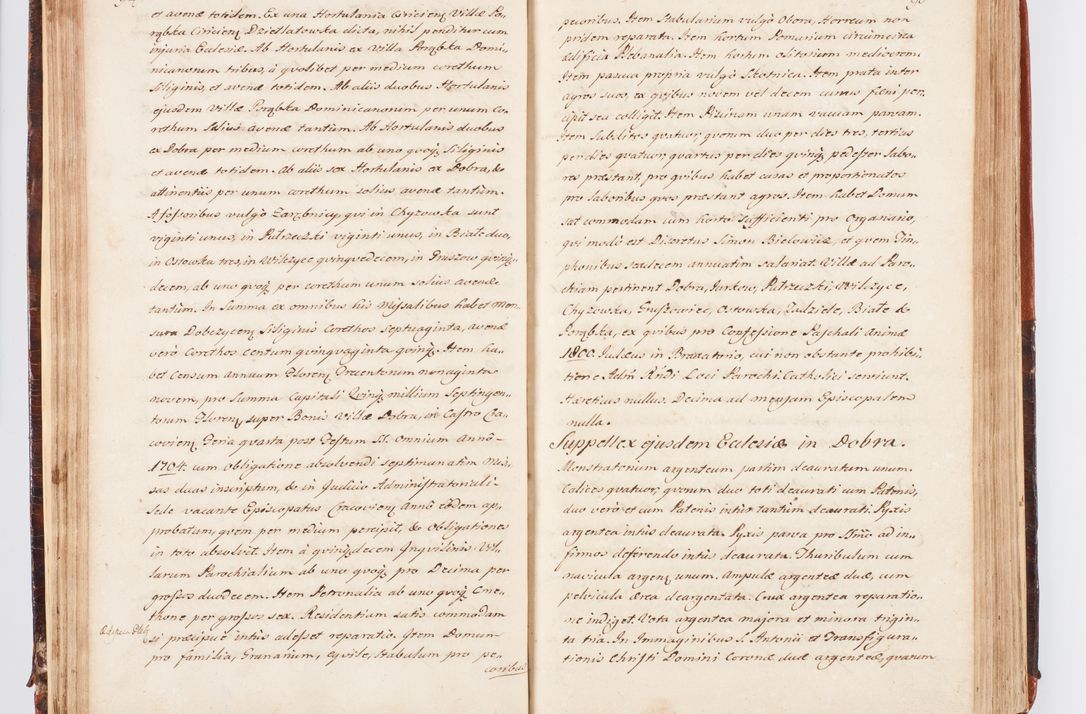 et avenæ totidem. Ex una Hortulania Cricień Villæ Po„
rąbka Cricień Dzietlatowska dicta, nihil penditur cum
injuria Ecclesiæ. Ab Hortulanis ex Villa Porąbka Domi„
nicanorum tribus, à qvolibet per medium corethum
Siliginis, et avenæ totidem. Ab aliis duobus Hortulanis
ejusdem Villæ Porąbka Dominicanorum per unum Co„
rethum Solius avenæ tantum. Ab Hortulanis duobus
ex Dobra per medium corethum ab uno qvoqȝ Siliginis
et avenæ totidem. Ab aliis sex Hortulanis ex Dobra, &
attinentiis per unum corethum solius avenæ tantum.
A fossoribus vulgò Zarębnicy, qvi in Chyzowka sunt
viginti unus, in Pulrzeczki viginti unus, in Białe duo,
in Ostowska tres, in Wilczyce qvinqvedecem, in Gruszow qvinqȝ„
decem, ab uno qvoqȝ per corethum unum solius avenæ
tantùm. In Summa ex omnibus his Missalibus habet Men„
sura Dobczyceń Siliginis Corethos septuaginta, avenæ
verò Corethos centum qvinqvaginta qvinqȝ. Item ha„
bet Censum annuum Floreń Trecentorum nonaginta
novem, pro Summa Capitali Qvinqȝ millium Septingen„
torum Floreń, super Bonis Villæ Dobra, in Castro Cra„
covień Feria qvarta post Festum SS. Omnium Annô
1704. cum obligatione absolvendi septimanatim Mis„
sas duas inscriptum, & in Judicio Administratoriali
Sede vacante Episcopatus Cracovień Annô eôdem ap„
probatum, qvem per medium percipit, & Obligationes
in toto absolvit. Item à qvinqȝdecem Inqvilinis Vil„
larum Parochialium ab uno qvoqȝ pro Decima per
grossos duodecem. Item Petronalia ab uno qvoqȝ Cme„
thone per grossos sex. Residentiam satis commodam
si præcipuè intùs adesset reparatio. Item Domum
pro familia, Granarium, Eqvile, Stabulum pro pe„
coribus
pecoribus. Item Stabularium vulgò Obora, Horreum non
pridem reparata. Item hortum Pomarium circumcirca
ædificia Plebanalia. Item hortum olitorium mediocrem.
Item pascua propria vulgò Skotnica. Item prata inter
agros suos, ex qvibus novem vel decem currus fœni per„
cipit seu colligit. Item Piscinam unam vacuam parvam.
Item Subditos qvatuor, qvorum duo per dies tres, tertius
per dies qvatuor, qvartus per dies qvinqȝ pedester labo„
res præstant, pro qvibus habet casas et proportionatos
pro laboribus qvos præstant agros. Item habet Domum
sat commodam cum horto Sufficienti pro Organario,
qvi modò est Discretus Simon Bielowicz, et qvem Tim„
phonibus sexdecem annuatim salariat. Villæ ad Paro„
chiam pertinent Dobra, Jurkow, Pulrzeczki, Wilczyce,
Chyzowka, Gruszowiec, Ostowska, Zadziele, Białe &
Porąbka, ex qvibus pro Confessione Paschali Animæ
1800. Judæus in Braxatorio, cui non obstante prohibi„
tione Admȝ Rṅdi Loci Parochi Catholici serviunt.
Hæreticus nullus. Decima ad mensam Episcopalem
nulla.
Suppellex ejusdem Ecclesiæ in Dobra.
Monstratorium argenteum partim deauratum unum.
Calices qvatuor, qvorum duo toti deaurati cum Patenis,
duo verò et cum Patenis intùs tantùm deaurati. Pyxis
argentea intùs deaurata. Pyxis parva pro SSmô ad in„
firmos deferendo intùs deaurata. Thuribulum cum
navicula argenȝ unum. Ampulæ argenteæ duæ, cum
pelvicula ærea deargentata. Crux argentea reparatio„
ne indiget. Vota argentea majora et minora trigin„
ta tria. In Immaginibus S. Antonii et Transfigura„
tionis Christi Domini Coronæ duæ argenteæ, qvarum